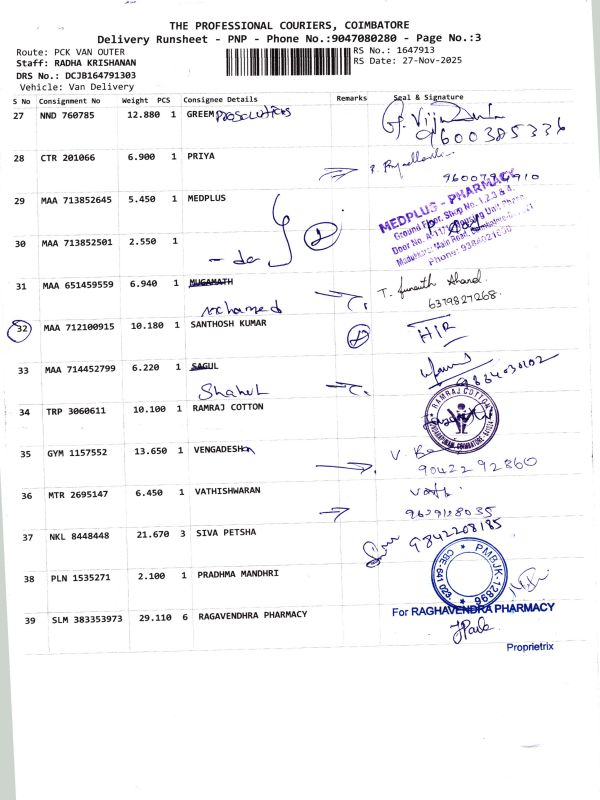 THE PROFESSIONAL COURIERS, COIMBATORE
Delivery Runsheet - PNP - Phone No.:9047080280 - Page No.:3
Route: PCK VAN OUTER
RS No.: 1647913
Staff: RADHA KRISHANAN
RS Date: 27-Nov-2025
DRS No.: DCJB164791303
Vehicle: Van Delivery
S No Consignment No Weight PCS Consignee Details Remarks Seal & Signature
27 NND 760785 12.880 1 GREEM
9600385336
28 CTR 201066 6.900 1 PRIYA
29 MAA 713852645 5.450 1 MEDPLUS
MEDPLUS - PHARMACY
Ground Floor, Shop No. 1,2,3 & 4,
30 MAA 713852501 2.550 1
- do
2
31 MAA 651459559 6.940 1 MUGAMATH
Mohamed
6379827268.
32 MAA 712100915 10.180 1 SANTHOSH KUMAR
2
H/R
33 MAA 714452799 6.220 1 SAGUL
Shahul
9884030102
34 TRP 3060611 10.100 1 RAMRAJ COTTON
RAMRAJ COTTON
35 GYM 1157552 13.650 1 VENGADESHan
90422 92860
36 MTR 2695147 6.450 1 VATHISHWARAN
9629128035
37 NKL 8448448 21.670 3 SIVA PETSHA
9842208185
38 PLN 1535271 2.100 1 PRADHMA MANDHRI
PMBJK-12896
CBE-641 020.
39 SLM 383353973 29.110 6 RAGAVENDHRA PHARMACY
For RAGHAVENDRA PHARMACY
Proprietrix